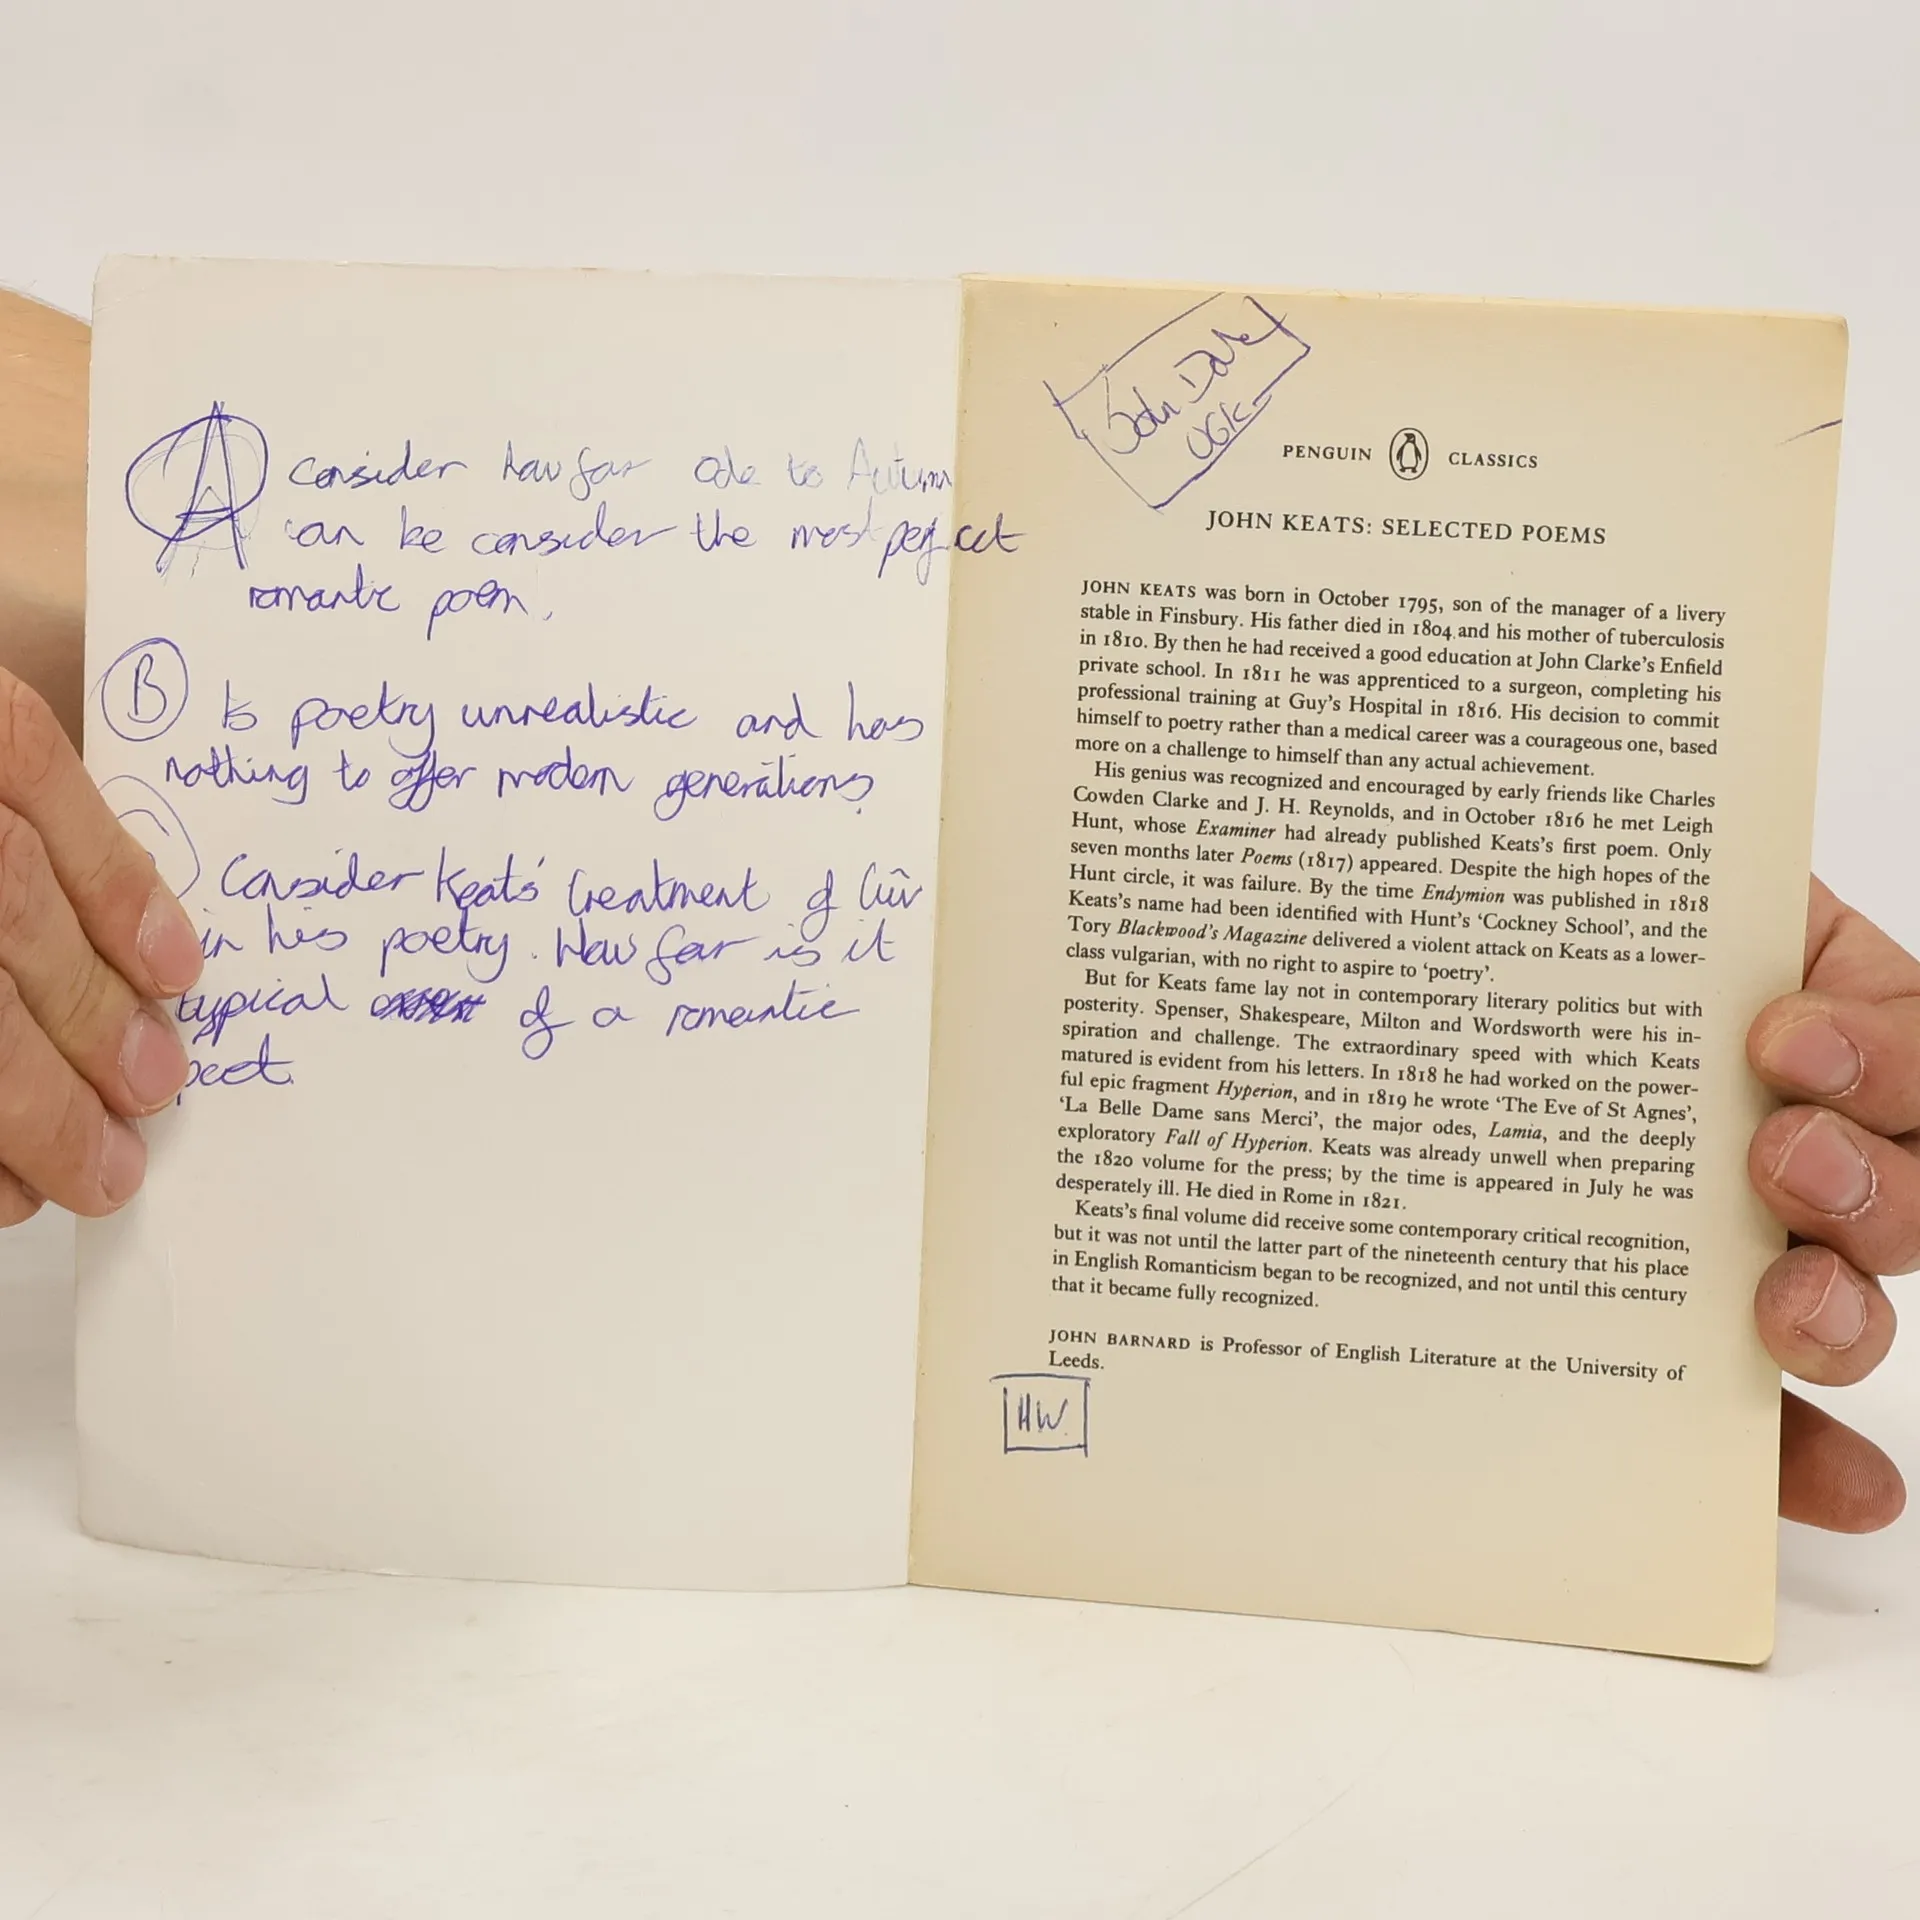 A
Consider how far Ode to Autumn
can be consider the most perfect
romantic poem.
B
Is poetry unrealistic and has
nothing to offer modern generations?
Consider Keats' treatment of
in his poetry. How far is it
typical of a romantic
poet.
John
PENGUIN CLASSICS
JOHN KEATS: SELECTED POEMS
JOHN KEATS was born in October 1795, son of the manager of a livery
stable in Finsbury. His father died in 1804 and his mother of tuberculosis
in 1810. By then he had received a good education at John Clarke's Enfield
private school. In 1811 he was apprenticed to a surgeon, completing his
professional training at Guy's Hospital in 1816. His decision to commit
himself to poetry rather than a medical career was a courageous one, based
more on a challenge to himself than any actual achievement.
His genius was recognized and encouraged by early friends like Charles
Cowden Clarke and J. H. Reynolds, and in October 1816 he met Leigh
Hunt, whose Examiner had already published Keats's first poem. Only
seven months later Poems (1817) appeared. Despite the high hopes of the
Hunt circle, it was failure. By the time Endymion was published in 1818
Keats's name had been identified with Hunt's 'Cockney School', and the
Tory Blackwood's Magazine delivered a violent attack on Keats as a lower-
class vulgarian, with no right to aspire to 'poetry'.
But for Keats fame lay not in contemporary literary politics but with
posterity. Spenser, Shakespeare, Milton and Wordsworth were his in-
spiration and challenge. The extraordinary speed with which Keats
matured is evident from his letters. In 1818 he had worked on the power-
ful epic fragment Hyperion, and in 1819 he wrote 'The Eve of St Agnes',
'La Belle Dame sans Merci', the major odes, Lamia, and the deeply
exploratory Fall of Hyperion. Keats was already unwell when preparing
the 1820 volume for the press; by the time is appeared in July he was
desperately ill. He died in Rome in 1821.
Keats's final volume did receive some contemporary critical recognition,
but it was not until the latter part of the nineteenth century that his place
in English Romanticism began to be recognized, and not until this century
that it became fully recognized.
JOHN BARNARD is Professor of English Literature at the University of
Leeds.
HW.